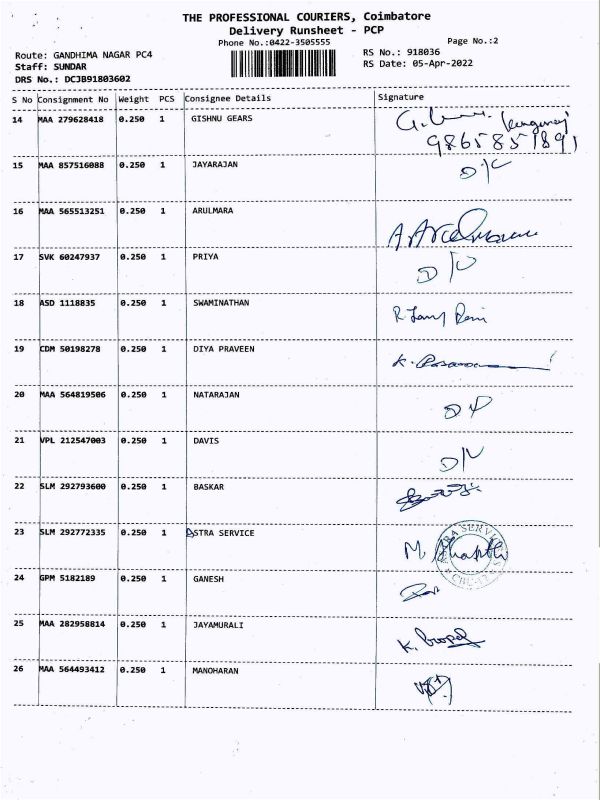 THE PROFESSIONAL COURIERS, Coimbatore
Delivery Runsheet - PCP
Phone No.:0422-3505555
Page No.:2
Route: GANDHIMA NAGAR PC4
RS No.: 918036
Staff: SUNDAR
RS Date: 05-Apr-2022
DRS No.: DCJB91803602
S No Consignment No Weight PCS Consignee Details Signature
14 MAA 279628418 0.250 1 GISHNU GEARS
9865851891
15 MAA 857516088 0.250 1 JAYARAJAN D/L
16 MAA 565513251 0.250 1 ARULMARA
17 SVK 60247937 0.250 1 PRIYA
18 ASD 1118835 0.250 1 SWAMINATHAN
19 CDM 50198278 0.250 1 DIYA PRAVEEN
20 MAA 564819506 0.250 1 NATARAJAN
21 VPL 212547003 0.250 1 DAVIS D/L
22 SLM 292793600 0.250 1 BASKAR
23 SLM 292772335 0.250 1 ASTRA SERVICE
24 GPM 5182189 0.250 1 GANESH
25 MAA 282958814 0.250 1 JAYAMURALI
26 MAA 564493412 0.250 1 MANOHARAN